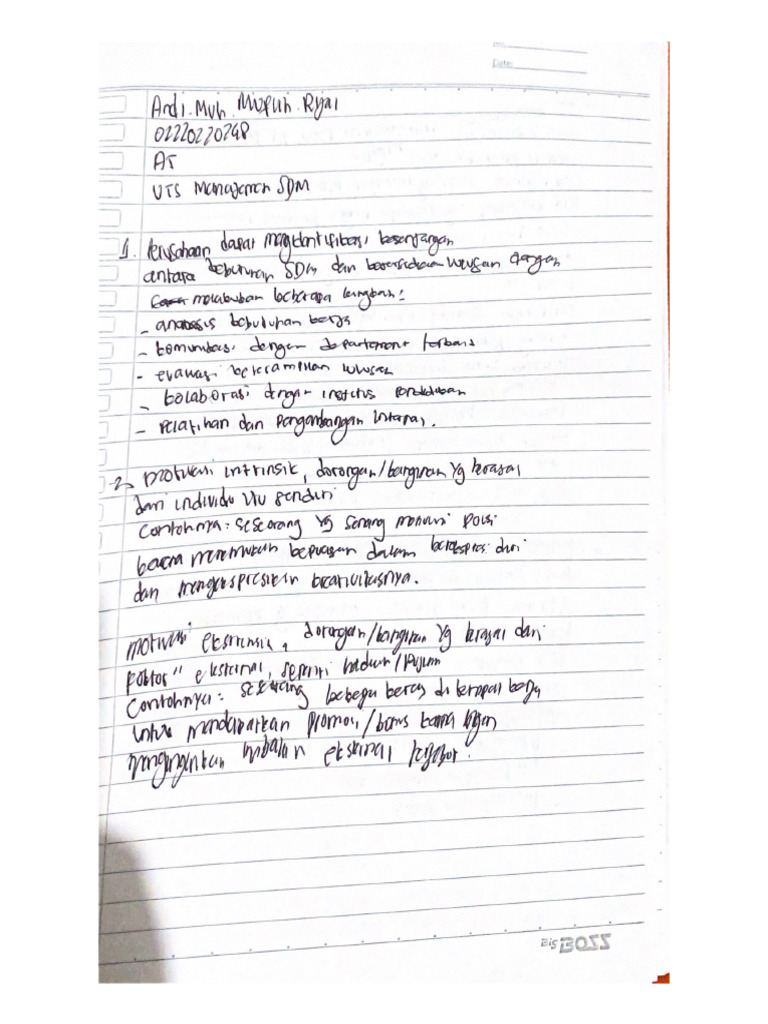 Date:
Andi. Muh. Miftuh. Rijal
02220220248
A5
UTS Manajemen SDM
1. Perusahaan dapat mengidentifikasi kesenjangan
antara kebutuhan SDM dan ketersediaan lulusan dengan
melakukan beberapa langkah:
- analisis kebutuhan kerja
- komunikasi dengan departement terkait
- evaluasi keterampilan lulusan
- kolaborasi dengan institusi pendidikan
- Pelatihan dan pengembangan internal.
2. motivasi intrinsik, dorongan/keinginan yg berasal
dari individu itu sendiri
Contohnya: seseorang yg senang menulis puisi
karena menemukan kepuasan dalam berekspresi diri
dan mengekspresikan kreativitasnya.
motivasi ekstrinsik, dorongan/keinginan yg berasal dari
faktor" eksternal, seperti hadiah/pujian
Contohnya: seseorang bekerja keras di tempat kerja
untuk mendapatkan promosi/bonus karena ingin
menginginkan imbalan eksternal tersebut.
Bis BOSS